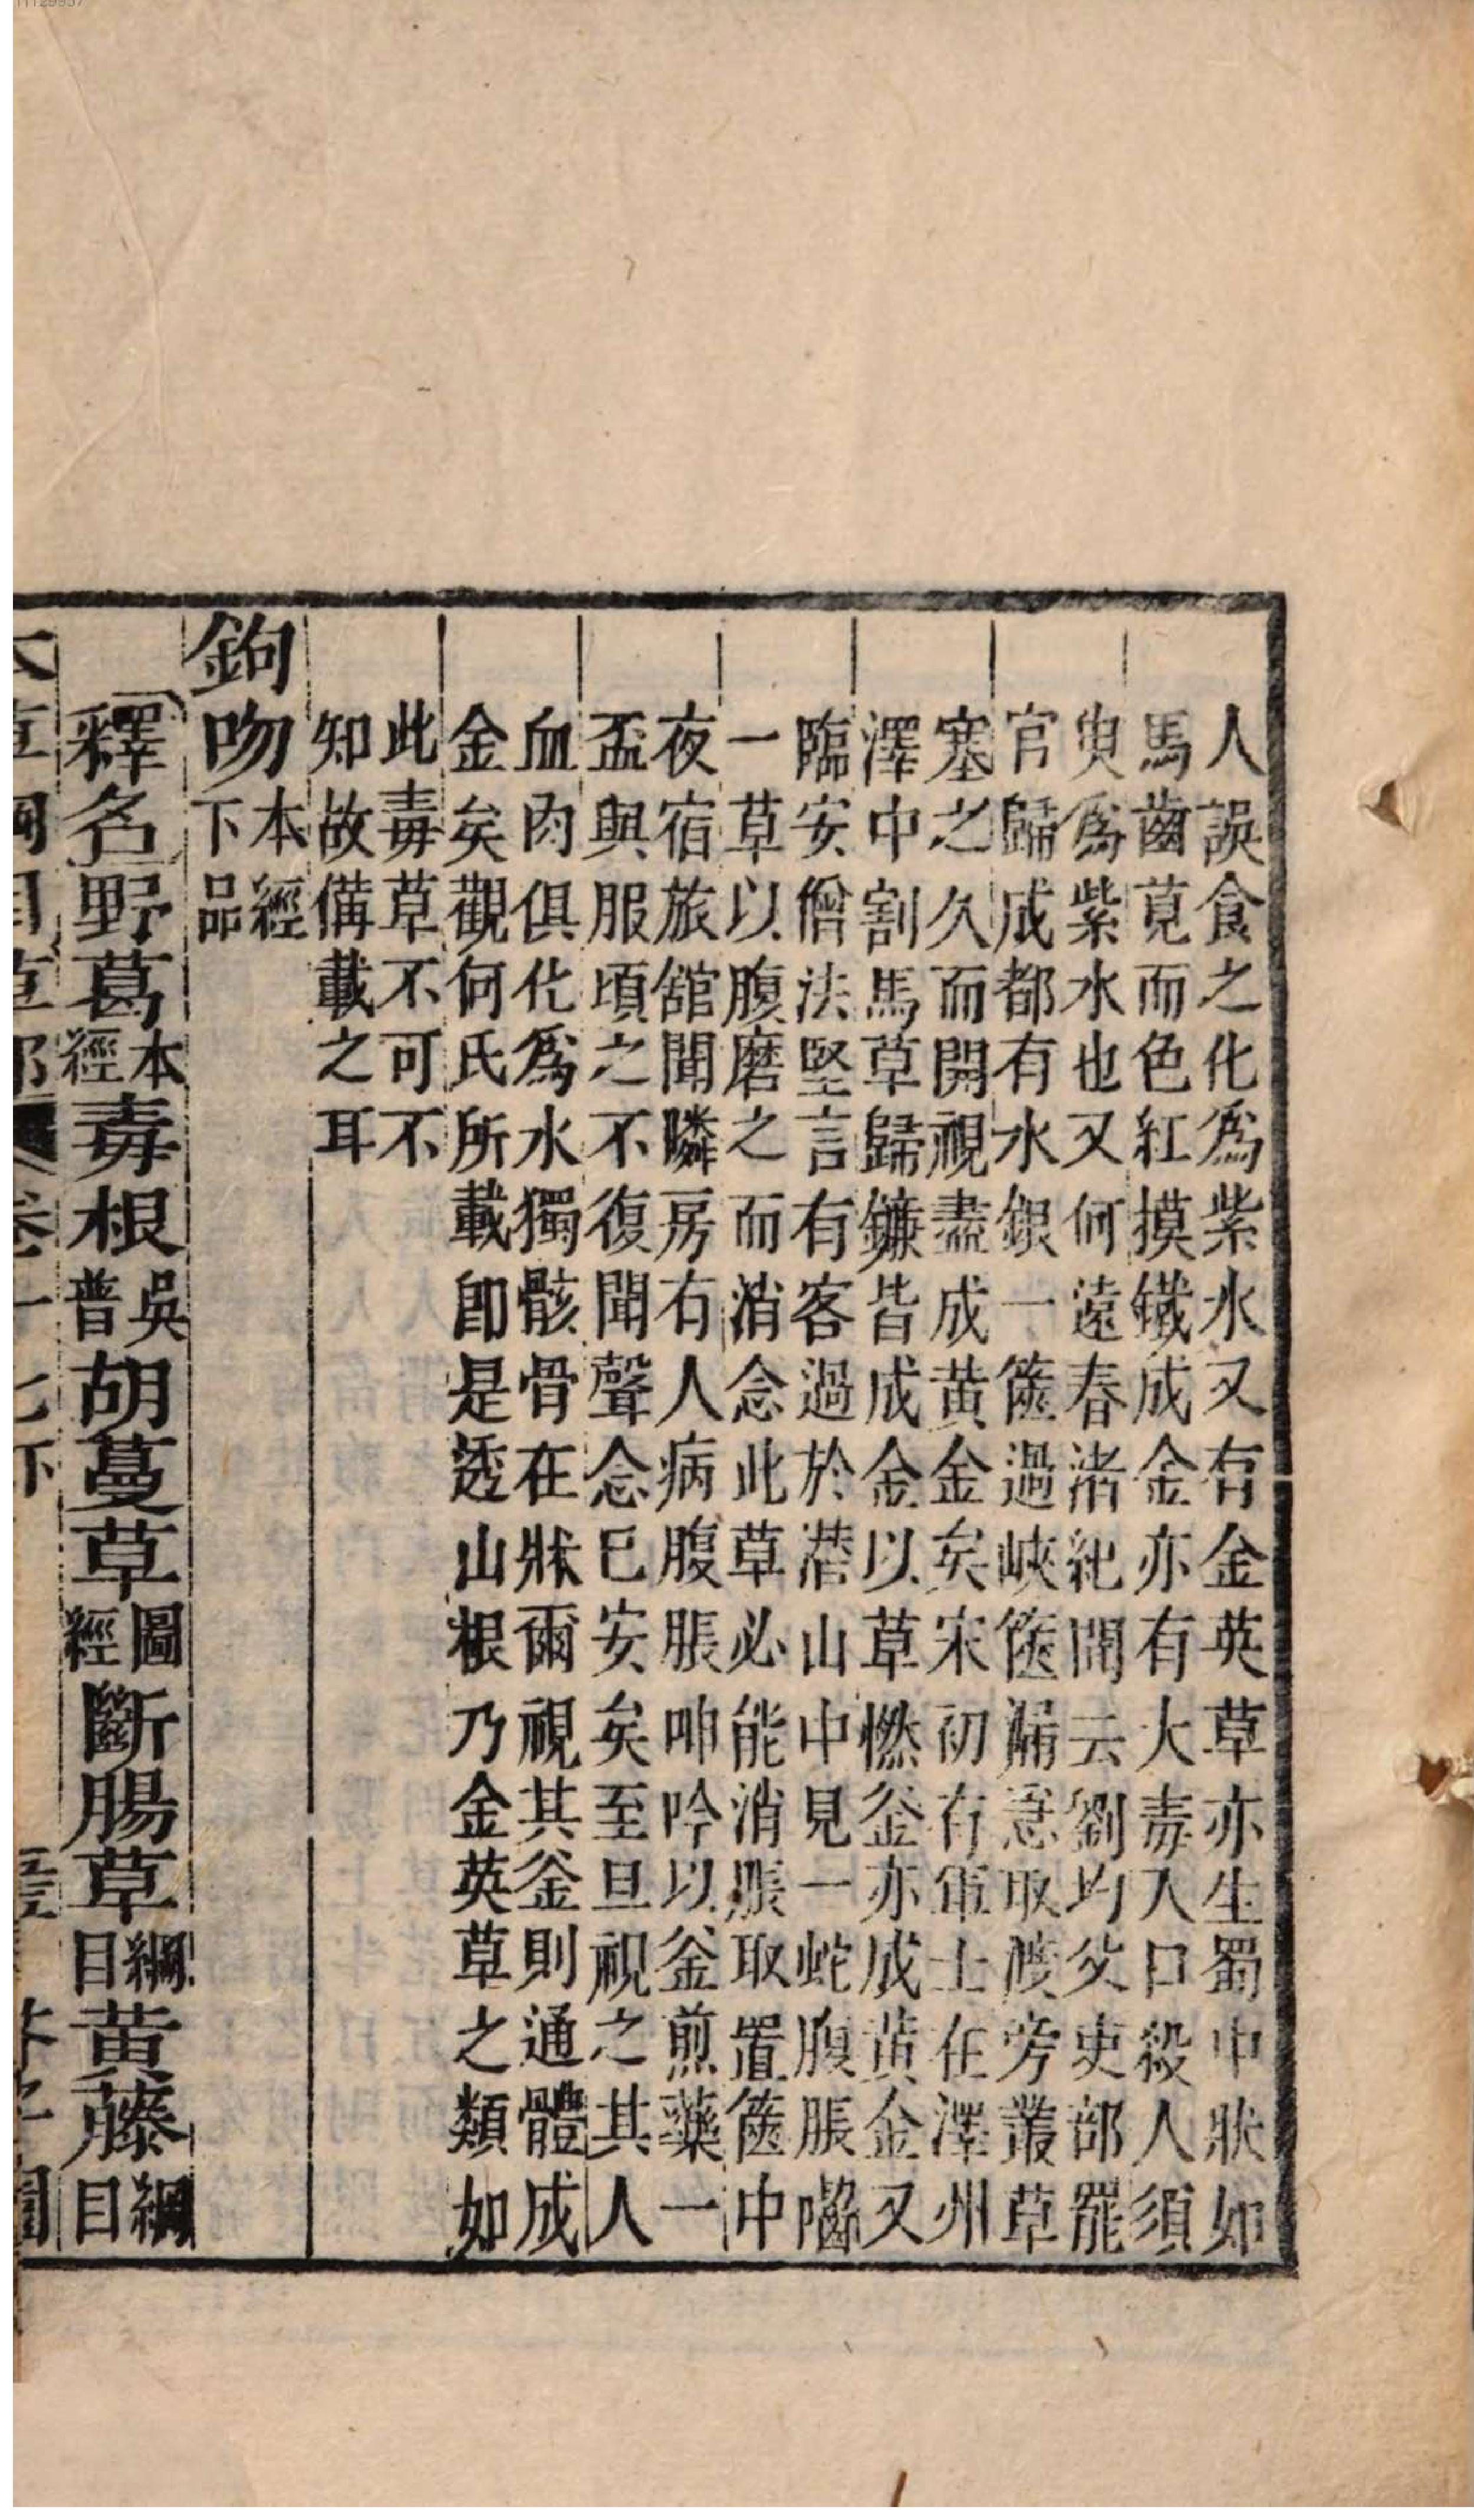 人誤食之化為紫水又有金英草亦生蜀中狀如
馬齒莧而色紅摸鐵成金亦有大毒入口殺人須
臾為紫水也又何遠春渚紀聞云劉均父吏部罷
官歸成都有水銀一篋過峽篋漏急取渡旁叢草
塞之久而開視盡成黃金矣宋初有軍士在澤州
澤中割馬草歸鐮皆成金以草燃釜亦成黃金又
臨安僧法堅言有客過於潛山中見一蛇腹脹嚙
一草以腹磨之而消念此草必能消脹取置篋中
夜宿旅館聞隣房有人病腹脹呻吟以釜煎藥一
盃與服頃之不復聞聲念已安矣至旦視之其人
血肉俱化為水獨骸骨在牀爾視其釜則通體成
金矣觀何氏所載即是透山根乃金英草之類如
此毒草不可不
知故備載之耳
鉤吻本經下品
釋名野葛本經毒根吳普胡蔓草圖經斷腸草綱目黃藤綱目